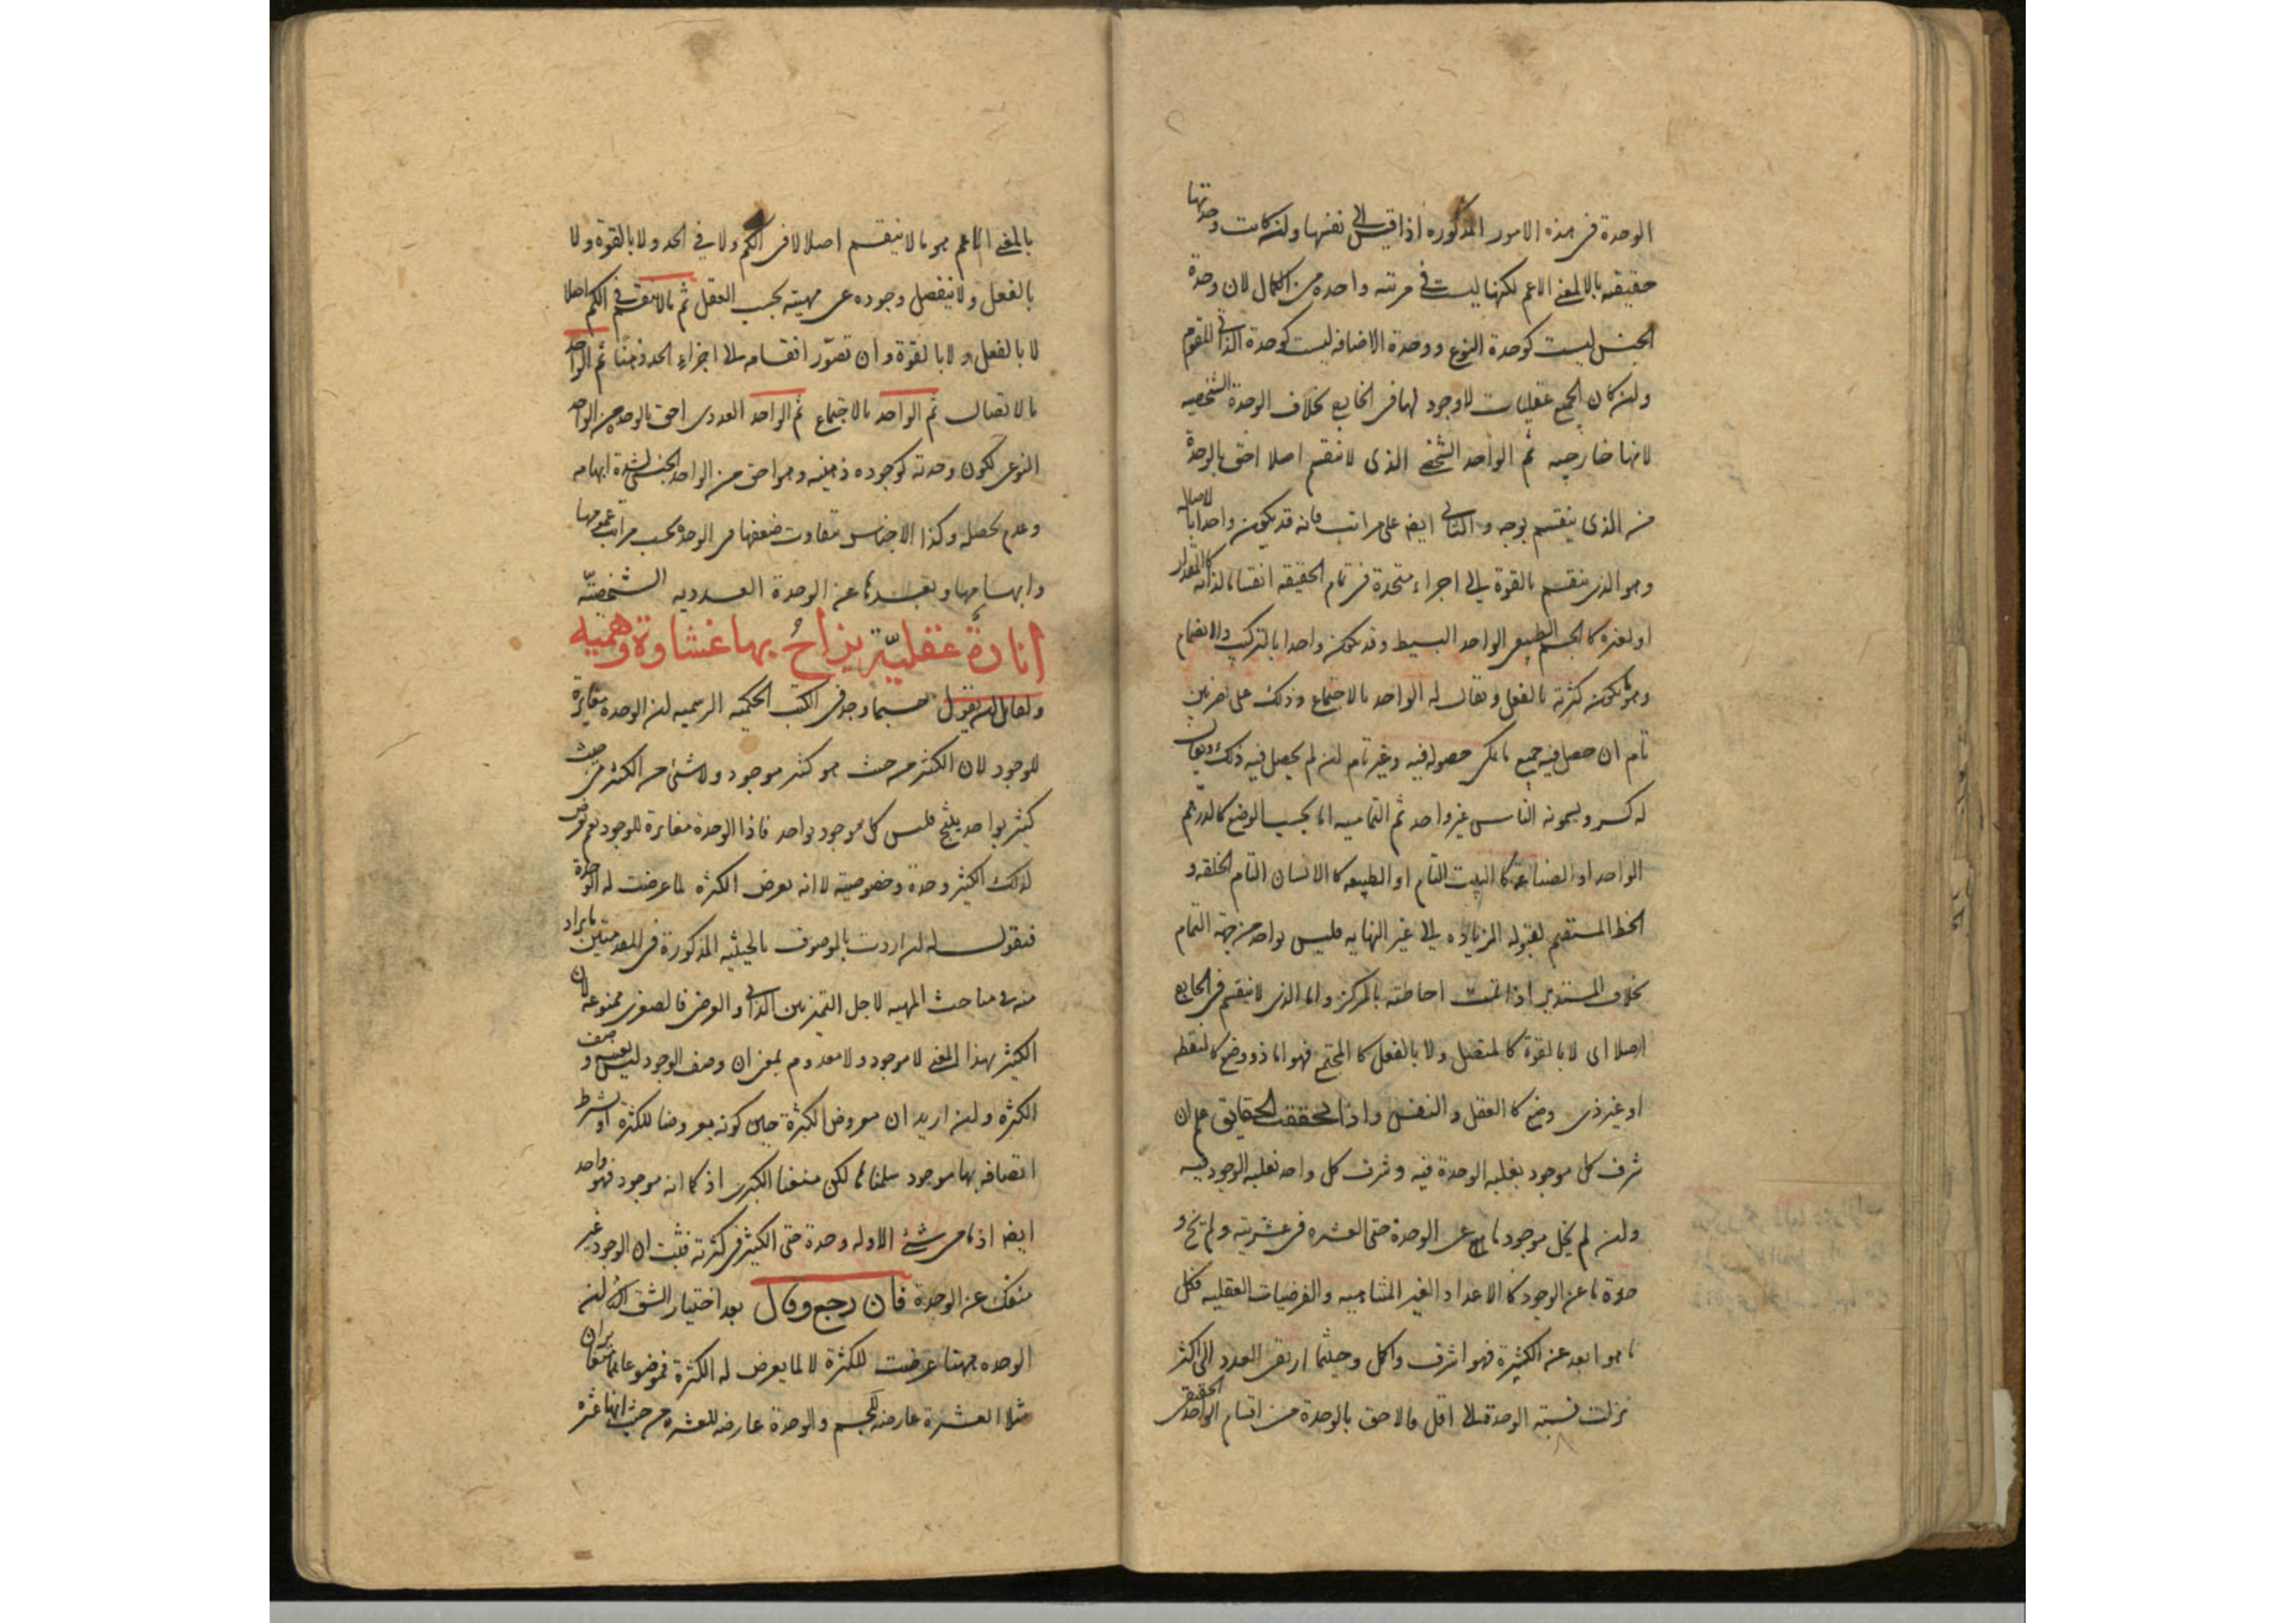 الوحدة فى هذه الامور المذكوره اذا قيس الى نفسها ولن كانت وحدتها
حقيقيه بالمعنى الاعم لكنها ليست فى مرتبه واحده من الكمال لان وحدة
الجنس ليست كوحدة النوع ووحدة الاضافه ليست كوحدة الذاتى المقوم
ولن كان الجميع عقليات لا وجود لها فى الخارج بخلاف الوحدة الشخصيه
لانها خارجيه ثم الواحد الشخصى الذى لا ينقسم اصلا احق بالوحدة
من الذى ينقسم بوجه والثانى ايضا على مراتب فانه قد يكون واحدا بالاتصال
وهو الذى ينقسم بالقوة الى اجزاء متحدة فى تمام الحقيقه انقساما لذاته كالمقدار
او لغيره كالجسم الطبيعى الواحد البسيط وقد يكون واحدا بالتركيب والانضمام
وهو ما يكون كثرته بالفعل ويقال له الواحد بالاجتماع وذلك على ضربين
تام ان حصل فيه جميع ما يمكن حصوله فيه وغير تام لن لم يحصل فيه ذلك ويقال
له كسر ويسمونه الناس غير واحد ثم التماميه اما بحسب الوضع كالدرهم
الواحد او الصناعة كالبيت التام او الطبيعه كالانسان التام الخلقه و
الخط المستقيم لقبوله الزياده الى غير النهايه فليس بواحد من جهة التمام
بخلاف المستدير اذا تمت احاطته بالمركز واما الذى لا ينقسم فى الخارج
اصلا اى لا بالقوة كالمتصل ولا بالفعل كالمجتمع فهو اما ذو وضع كالنقطه
او غير ذى وضع كالعقل والنفس واذا تحققت الحقايق علم ان
شرف كل موجود بغلبه الوحدة فيه وشرف كل واحد بغلبه الوجود فيه
ولن لم يخل موجود ما عن الوحدة حتى العشره فى عشريته ولم يخل و
حدة ما عن الوجود كالاعداد الغير المتناهيه والفرضيات العقليه فكل
ما هو ابعد عن الكثرة فهو اشرف واكمل وحيثما ارتقى العدد الى اكثر
نزلت نسبته الوحدة الى اقل فالاحق بالوحدة من اقسام الواحد الحقيقى
بالمعنى الاعم هو ما لا ينقسم اصلا لا فى الكم ولا فى الحد ولا بالقوة ولا
بالفعل ولا ينفصل وجوده عن مهيته بحسب العقل ثم ما لا ينقسم فى الكم اصلا
لا بالفعل ولا بالقوة وان تصور انقسامه الى اجزاء الحد ذهنا ثم الواحد
بالاتصال ثم الواحد بالاجتماع ثم الواحد العددى احق بالوحدة من الواحد
النوعى لكون وحدته كوجوده ذهنيه وهو احق من الواحد الجنسى لشدة ابهامه
وعدم تحصله وكذا الاجناس متفاوت ضعفها فى الوحدة بحسب مراتب عمومها
وابهامها وبعدها عن الوحدة العدديه الشخصيّه
انارةٌ عقليّة يزاحُ بها غشاوة وهميه
ولقائل لن يقول حسبما وجد فى الكتب الحكميه الرسميه لن الوحدة مغايرة
للوجود لان الكثير من حيث هو كثير موجود ولا شئ من الكثير من حيث
كثير بواحد ينتج فليس كل موجود بواحد فاذا الوحدة مغايرة للوجود نعم يعرض
لذلك الكثير وحدة وخصوصيه لا انه يعرض الكثره لما عرضت له الوحدة
فنقول له لن اردت بالموصوف بالحيثيه المذكورة فى المقدمتين ما يراد
منه فى مباحث المهيه لاجل التميز بين الذاتى والعرضى فالصغرى ممنوعة لان
الكثير بهذا المعنى لا موجود ولا معدوم بمعنى ان وصف الوجود ليس بعينه وصف
الكثره ولن اريد ان معروض الكثرة حين كونه معروضا للكثرة او بشرط
اتصافه بها موجود سلمنا لكن منعنا الكبرى اذ كما انه موجود فهو واحد
ايضا اذ ما من شئ الا وله وحدة حتى الكثير فى كثرته فثبت ان الوجود غير
منفك عن الوحدة فان رجع وقال بعد اختيار الشق الثانى لن
الوحده هيهنا عرضت للكثرة لا لما يعرض له الكثرة فموضوعاهما متغايران
مثلا العشرة عارضه للجسم والوحدة عارضه للعشره من حيث انها عشره